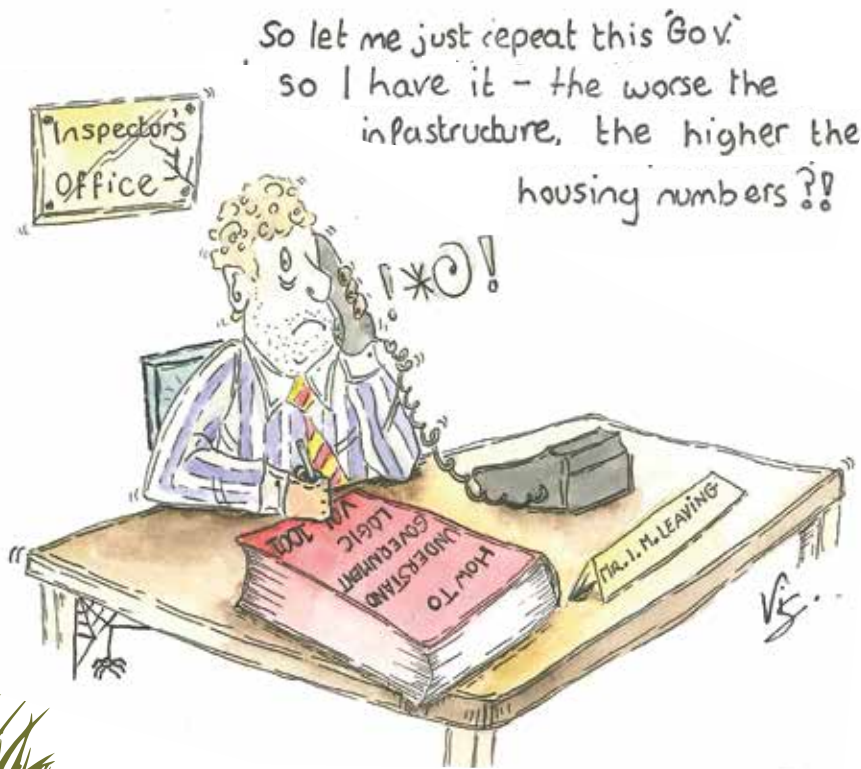 So let me just repeat this 'Gov.'
so I have it - the worse the
infastructure, the higher the
housing numbers ?!
Inspector's
Office
!*@!
HOW TO
UNDERSTAND
GOVERNMENT
LOGIC
VOL 1001
MR. I. M. LEAVING
Vic